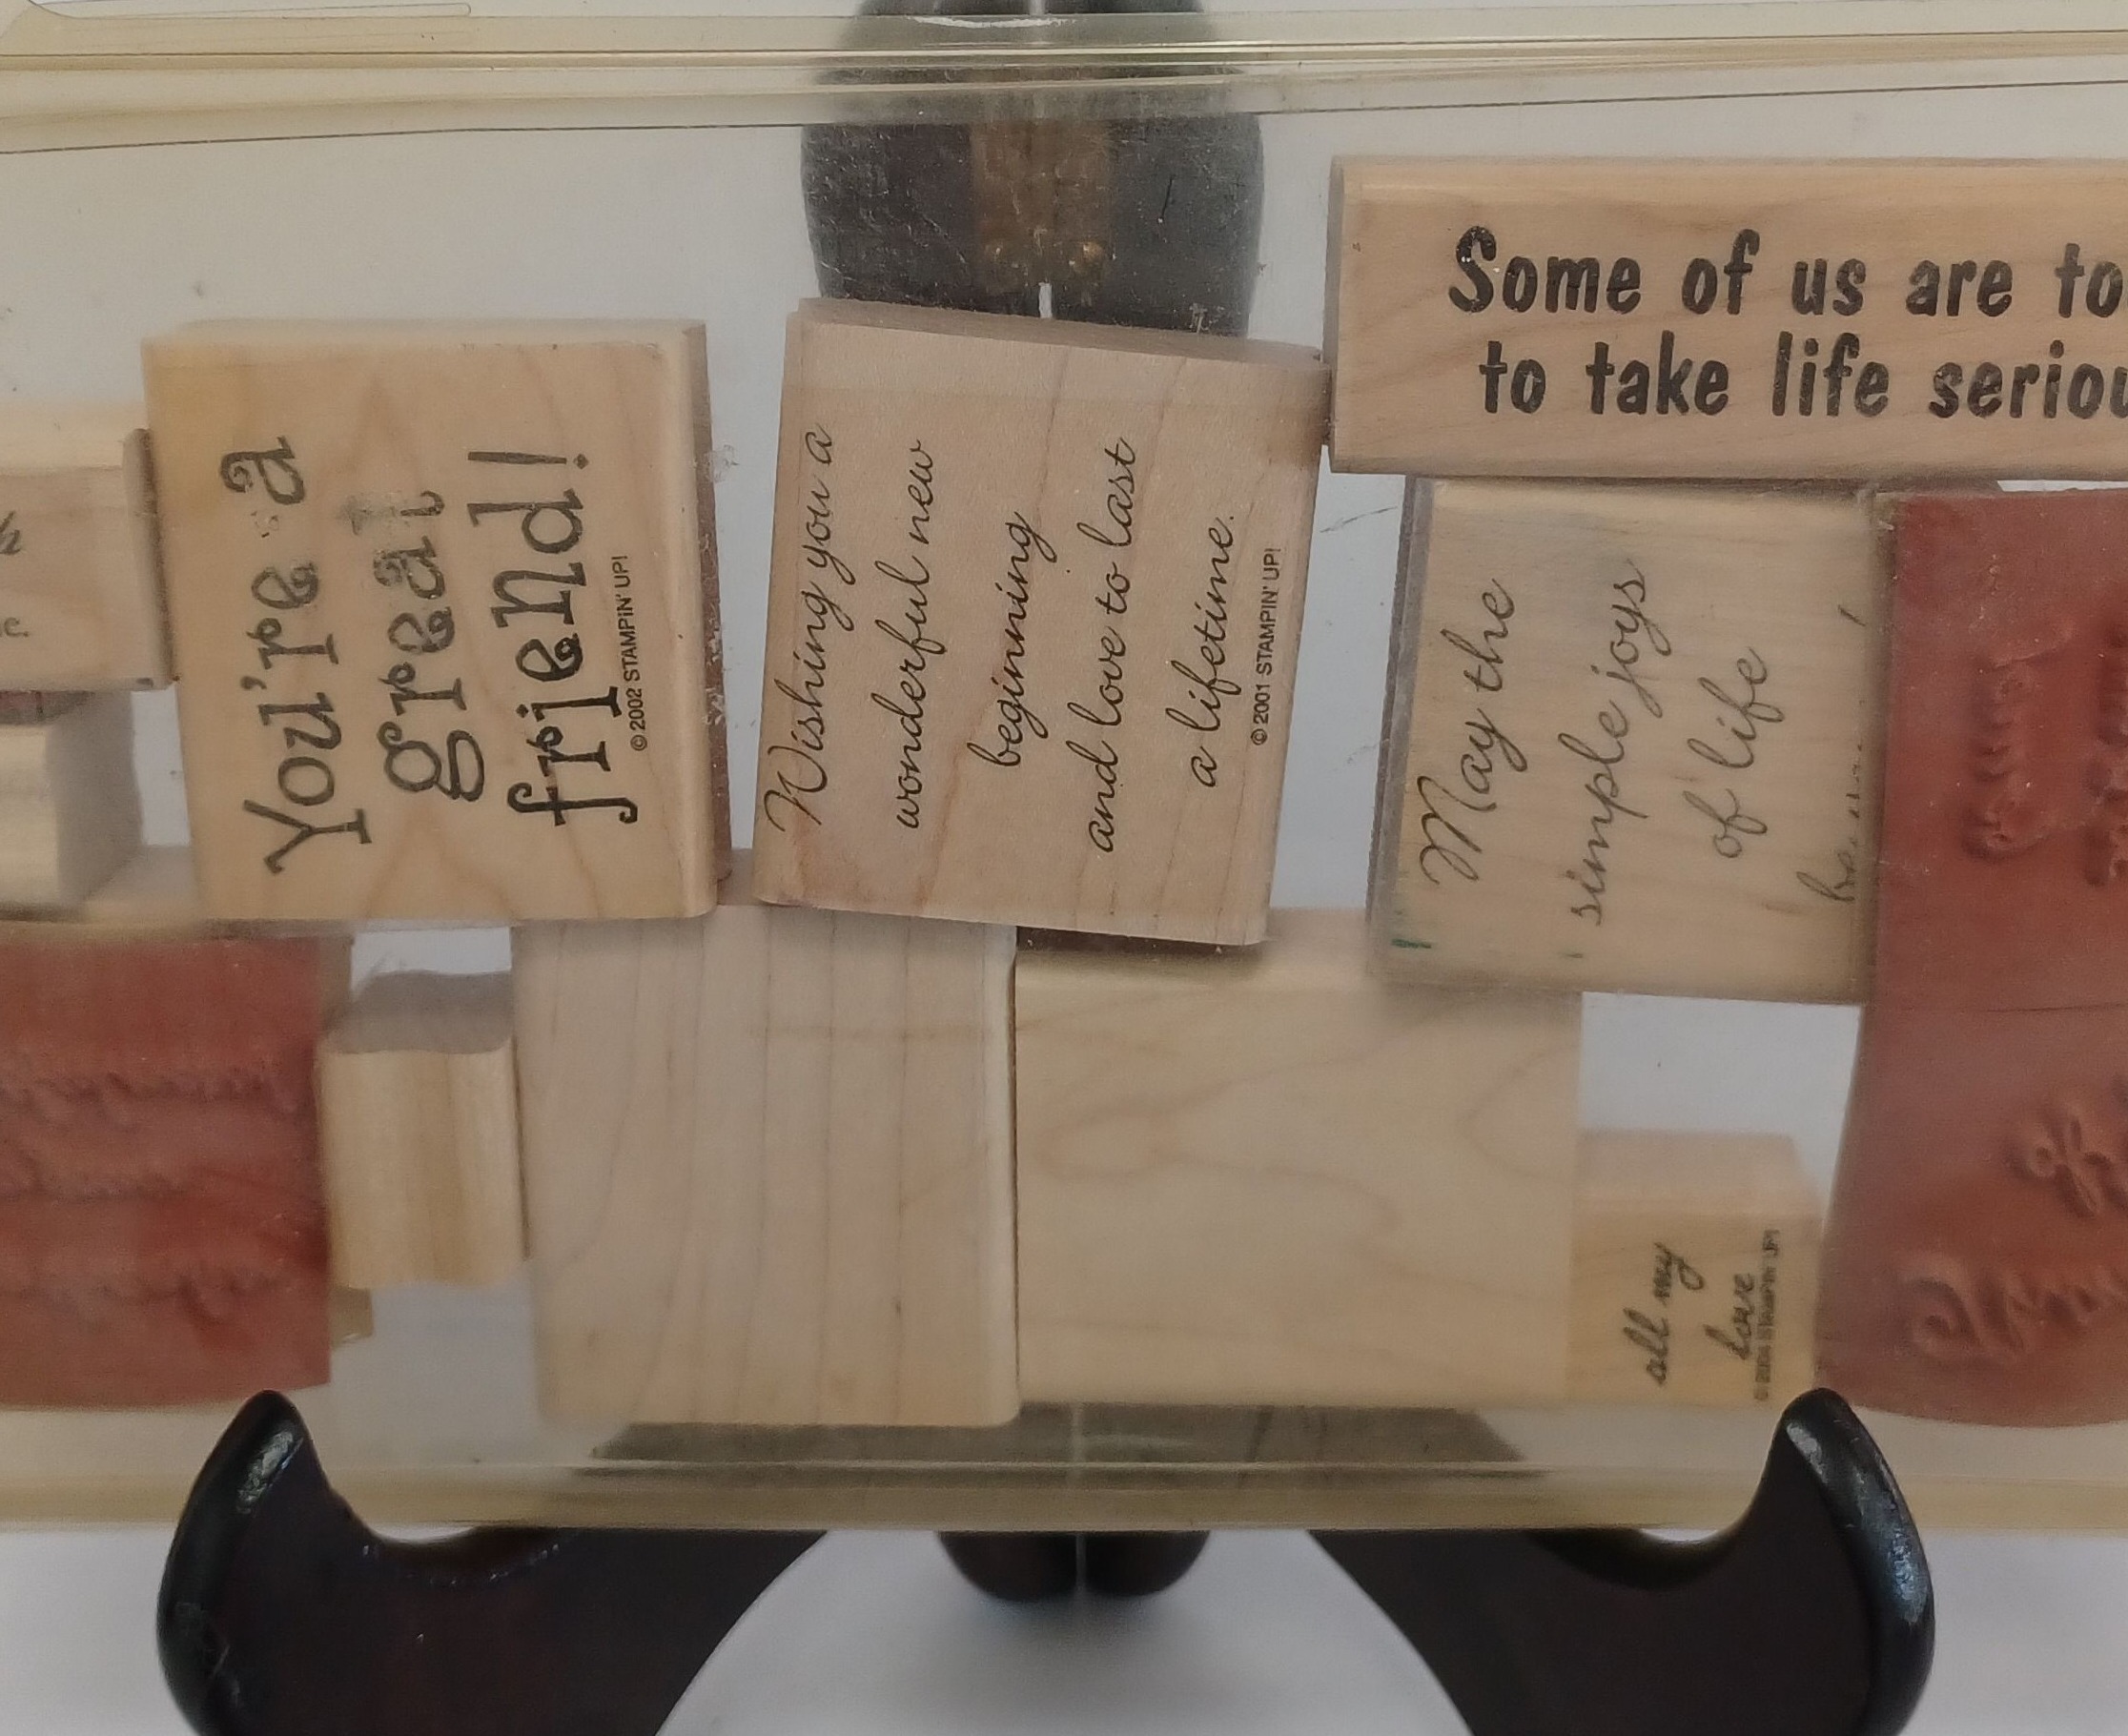 You're a
great
friend!
©2002 STAMPIN' UP!
Wishing you a
wonderful new
beginning
and love to last
a lifetime.
©2001 STAMPIN' UP!
Some of us are to
to take life seriou
May the
simple joys
of life
all my
love